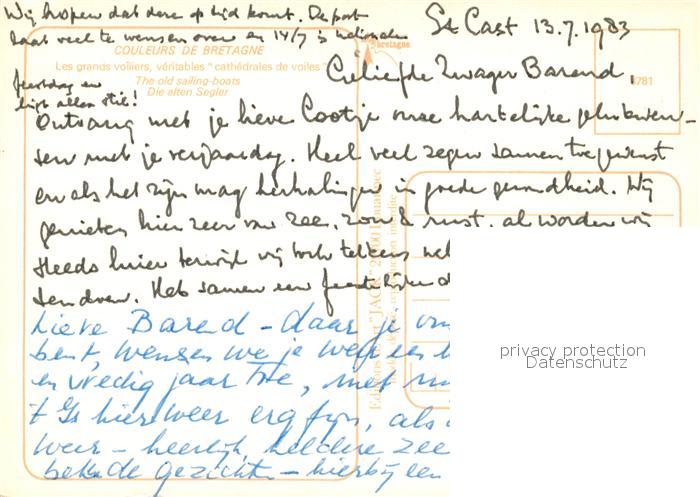 Wij hopen dat deze op tijd komt. De post
laat veel te wensen over en 14/7 is nationale
feestdag en
ligt alles stil!
St Cast 13.7.1983
bretagne
COULEURS DE BRETAGNE
Les grands voiliers, véritables "cathédrales de voiles"
The old sailing-boats
Die alten Segler
8781
Geliefde Zwager Barend,
Ontvang met je lieve Cootje onze hartelijke gelukwen-
sen met je verjaardag. Heel veel zegen samen toegewenst
en als het zijn mag herhalingen in goede gezondheid. Wij
genieten hier zeer van zee, zon & rust. al worden wij
steeds
Heb samen een feestelijke
Lieve Barend - daar je
bent, wensen we je weer een
en vredig jaar toe, met
't Is hier weer erg fijn, als
weer - heerlijk, heldere zee
bekende gezichten - hierbij een
Editions d'Art "JACK"
reproduction interdite
privacy protection
Datenschutz